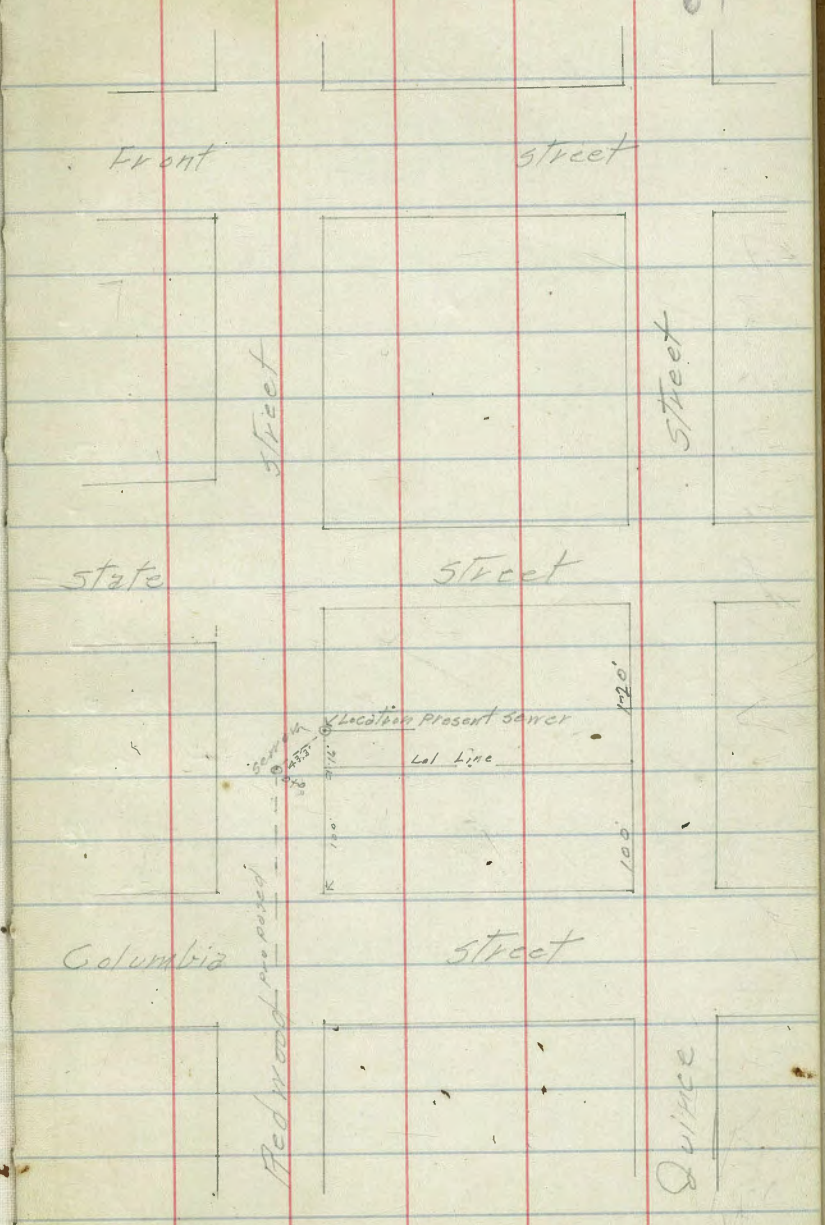 Front Street
Street
Street
State Street
120'
Location Present Sewer
Sewer
43.5'
16'
Lot Line
0+0
100'
100'
proposed
Columbia Street
Redwood
Quince